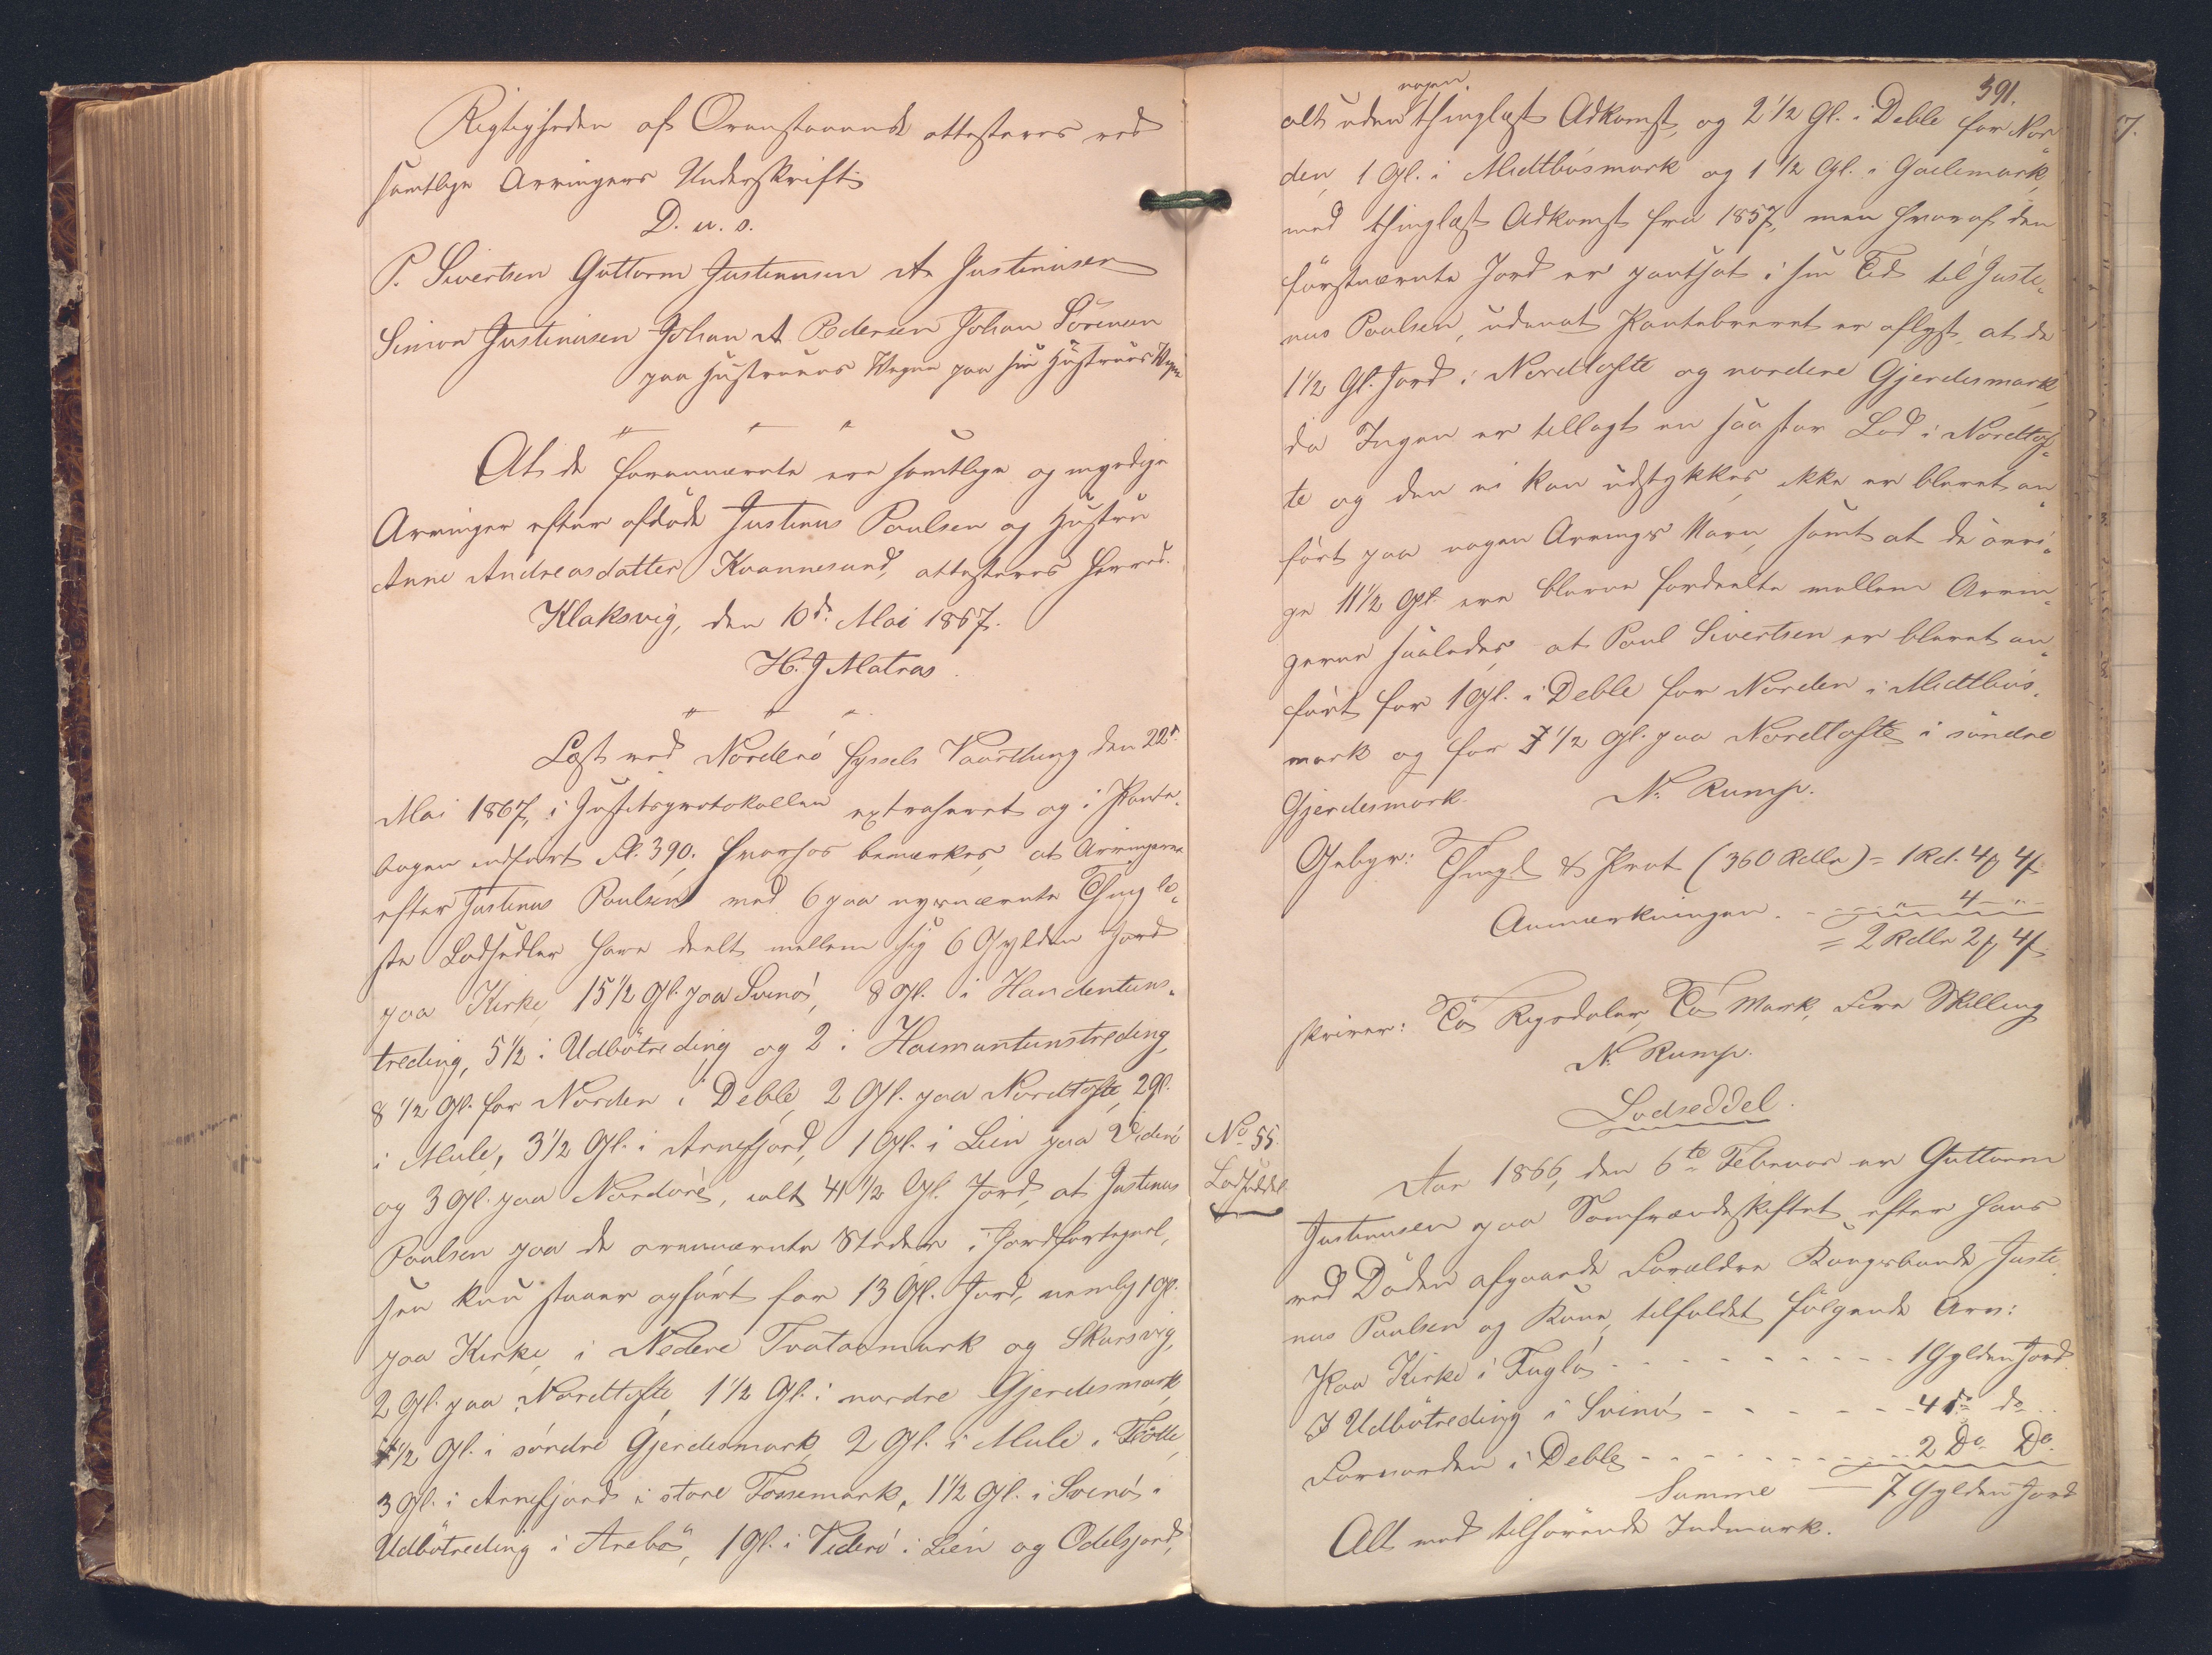 Rigtigheden af Ovenstaaende attesteres ved
samtlige Arvingers Underskrift
D. u. s.
P. Sivertsen Guttorm Justinusen A Justinusen
Simon Justinusen Johan A Pedersen Johan Sörensen
paa Hustruens Vegne paa sin Hustrues Vegne
" " "
At de forannævnte ere samtlige og myndige
Arvinger efter afdöde Justinus Poulsen og Hustru
Anne Andreasdatter Kvannesund, attesteres herved.
Klaksvig, den 10d. Mai 1867.
H. J Matras.
" " "
Læst ved Norderö Syssels Vaarthing den 22d.
Mai 1867, i Justitsprotokollen extraheret og i Pante-
bogen indfört Fl. 390. hvorhos bemærkes, at Arvingerne
efter Justinus Poulsen med 6 paa nysnævnte Thing læ-
ste Lodsedler have deelt mellem sig 6 Gylden Jord
paa Kirke, 15 1/2 Gl. paa Svinö, 8 Gl. i Handentuns-
treding, 5 1/2 i Udbötreding og 2 i Heimantunstreding,
8 1/2 Gl. for Norden i Deble, 2 Gl. paa Nordtofte, 2 Gl.
i Mule, 3 1/2 Gl. i Arnefjord, 1 Gl. i Lien paa Viderö
og 3 Gl. paa Nordöre, ialt 41 1/2 Gl. Jord, at Justinus
Poulsen paa de ovennævnte Steder i Jordfortegnel-
sen kun staaer opfört for 13 Gl. Jord, nemlig 1 Gl.
paa Kirke, i Nedere Tvataamark og Skarsvig,
2 Gl. paa Nordtofte, 1 1/2 Gl. i nordre Gjerdesmark,
1/2 Gl. i söndre Gjerdesmark, 2 Gl. i Mule i
3 Gl. i Arnefjord i store Fossemark, 1 1/2 Gl. i Svinö i
Udbötreding i Arebö, 1 Gl. i Viderö i Lien og Odelsjord,
391.
alt uden nogen thinglæst Adkomst, og 2 1/2 Gl. i Deble for Nor-
den, 1 Gl. i Midtbösmark og 1 1/2 Gl. i Gaelimark,
med thinglæst Adkomst fra 1857, men hvoraf den
förstnævnte Jord er pantsat i sin Tid til Justi-
nus Poulsen, udenat Pantebrevet er aflyst, at de
1 1/2 Gl. Jord i Nordtofte og nordere Gjerdesmark,
da Ingen er tillagt en saa stor Lod i Nordtof-
te og den ei kan udstykkes, ikke er blevet an-
fört paa nogen Arvings Navn, samt at de övri-
ge 11 1/2 Gl. ere blevne fordeelte mellem Arvin-
gerne saaledes, at Poul Sivertsen er blevet an-
fört for 1 Gl. i Deble for Norden i Midtbös-
mark og for 1/2 Gl. paa Nordtofte i söndre
Gjerdesmark. N. Rump.
Gebyr: Thingl & Prot (360 Rdlr) = 1 Rd. 4 4
Anmærkningen. 4 "
= 2 Rdlr 2 4
skriver: To Rigsdaler, To Mark, Fire Skilling
N. Rump.
Lodseddel.
No 55.
Lodseddel
Aar 1866, den 6te Februar er Guttorm
Justinusen paa Samfrændeskiftet efter hans
ved Döden afgaaede Forældre Kongsbonde Justi-
nus Poulsen og Kone, tilfaldet fölgende Arv:
Paa Kirke i Fuglö - - - - - 1 Gylden Jord
I Udbötreding i Svinö - - - - - 4 do do
Fornorden i Deble - - - - - 2 Do Do
Summe — 7 Gylden Jord
Alt med tilhörende Indmark.